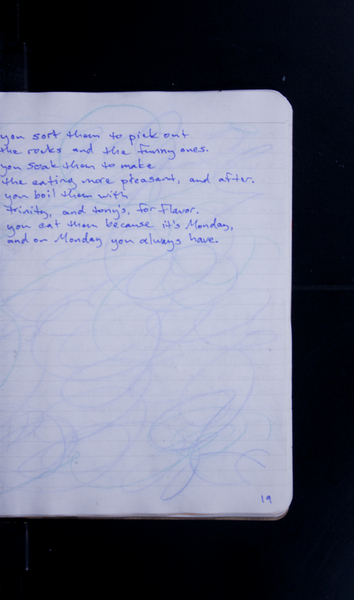 you sort them to pick out
the rocks and the funny ones.
you soak them to make
the eating more pleasant, and after.
you boil them with
trinity, and tony's, for flavor.
you eat them because it's Monday,
and on Monday you always have.
19